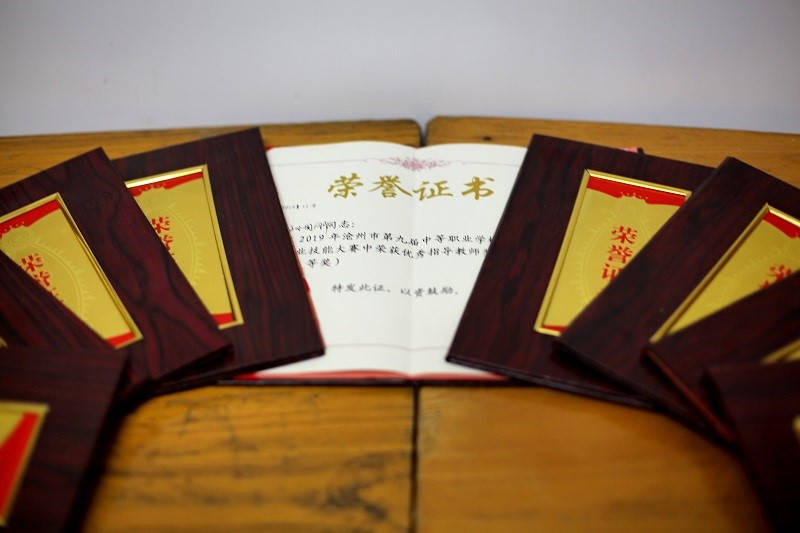 荣誉证
荣誉证书
同志：
2019年沧州市第九届中等职业学校
业技能大赛中荣获优秀指导教师
等奖）
特发此证，以资鼓励。
荣誉证